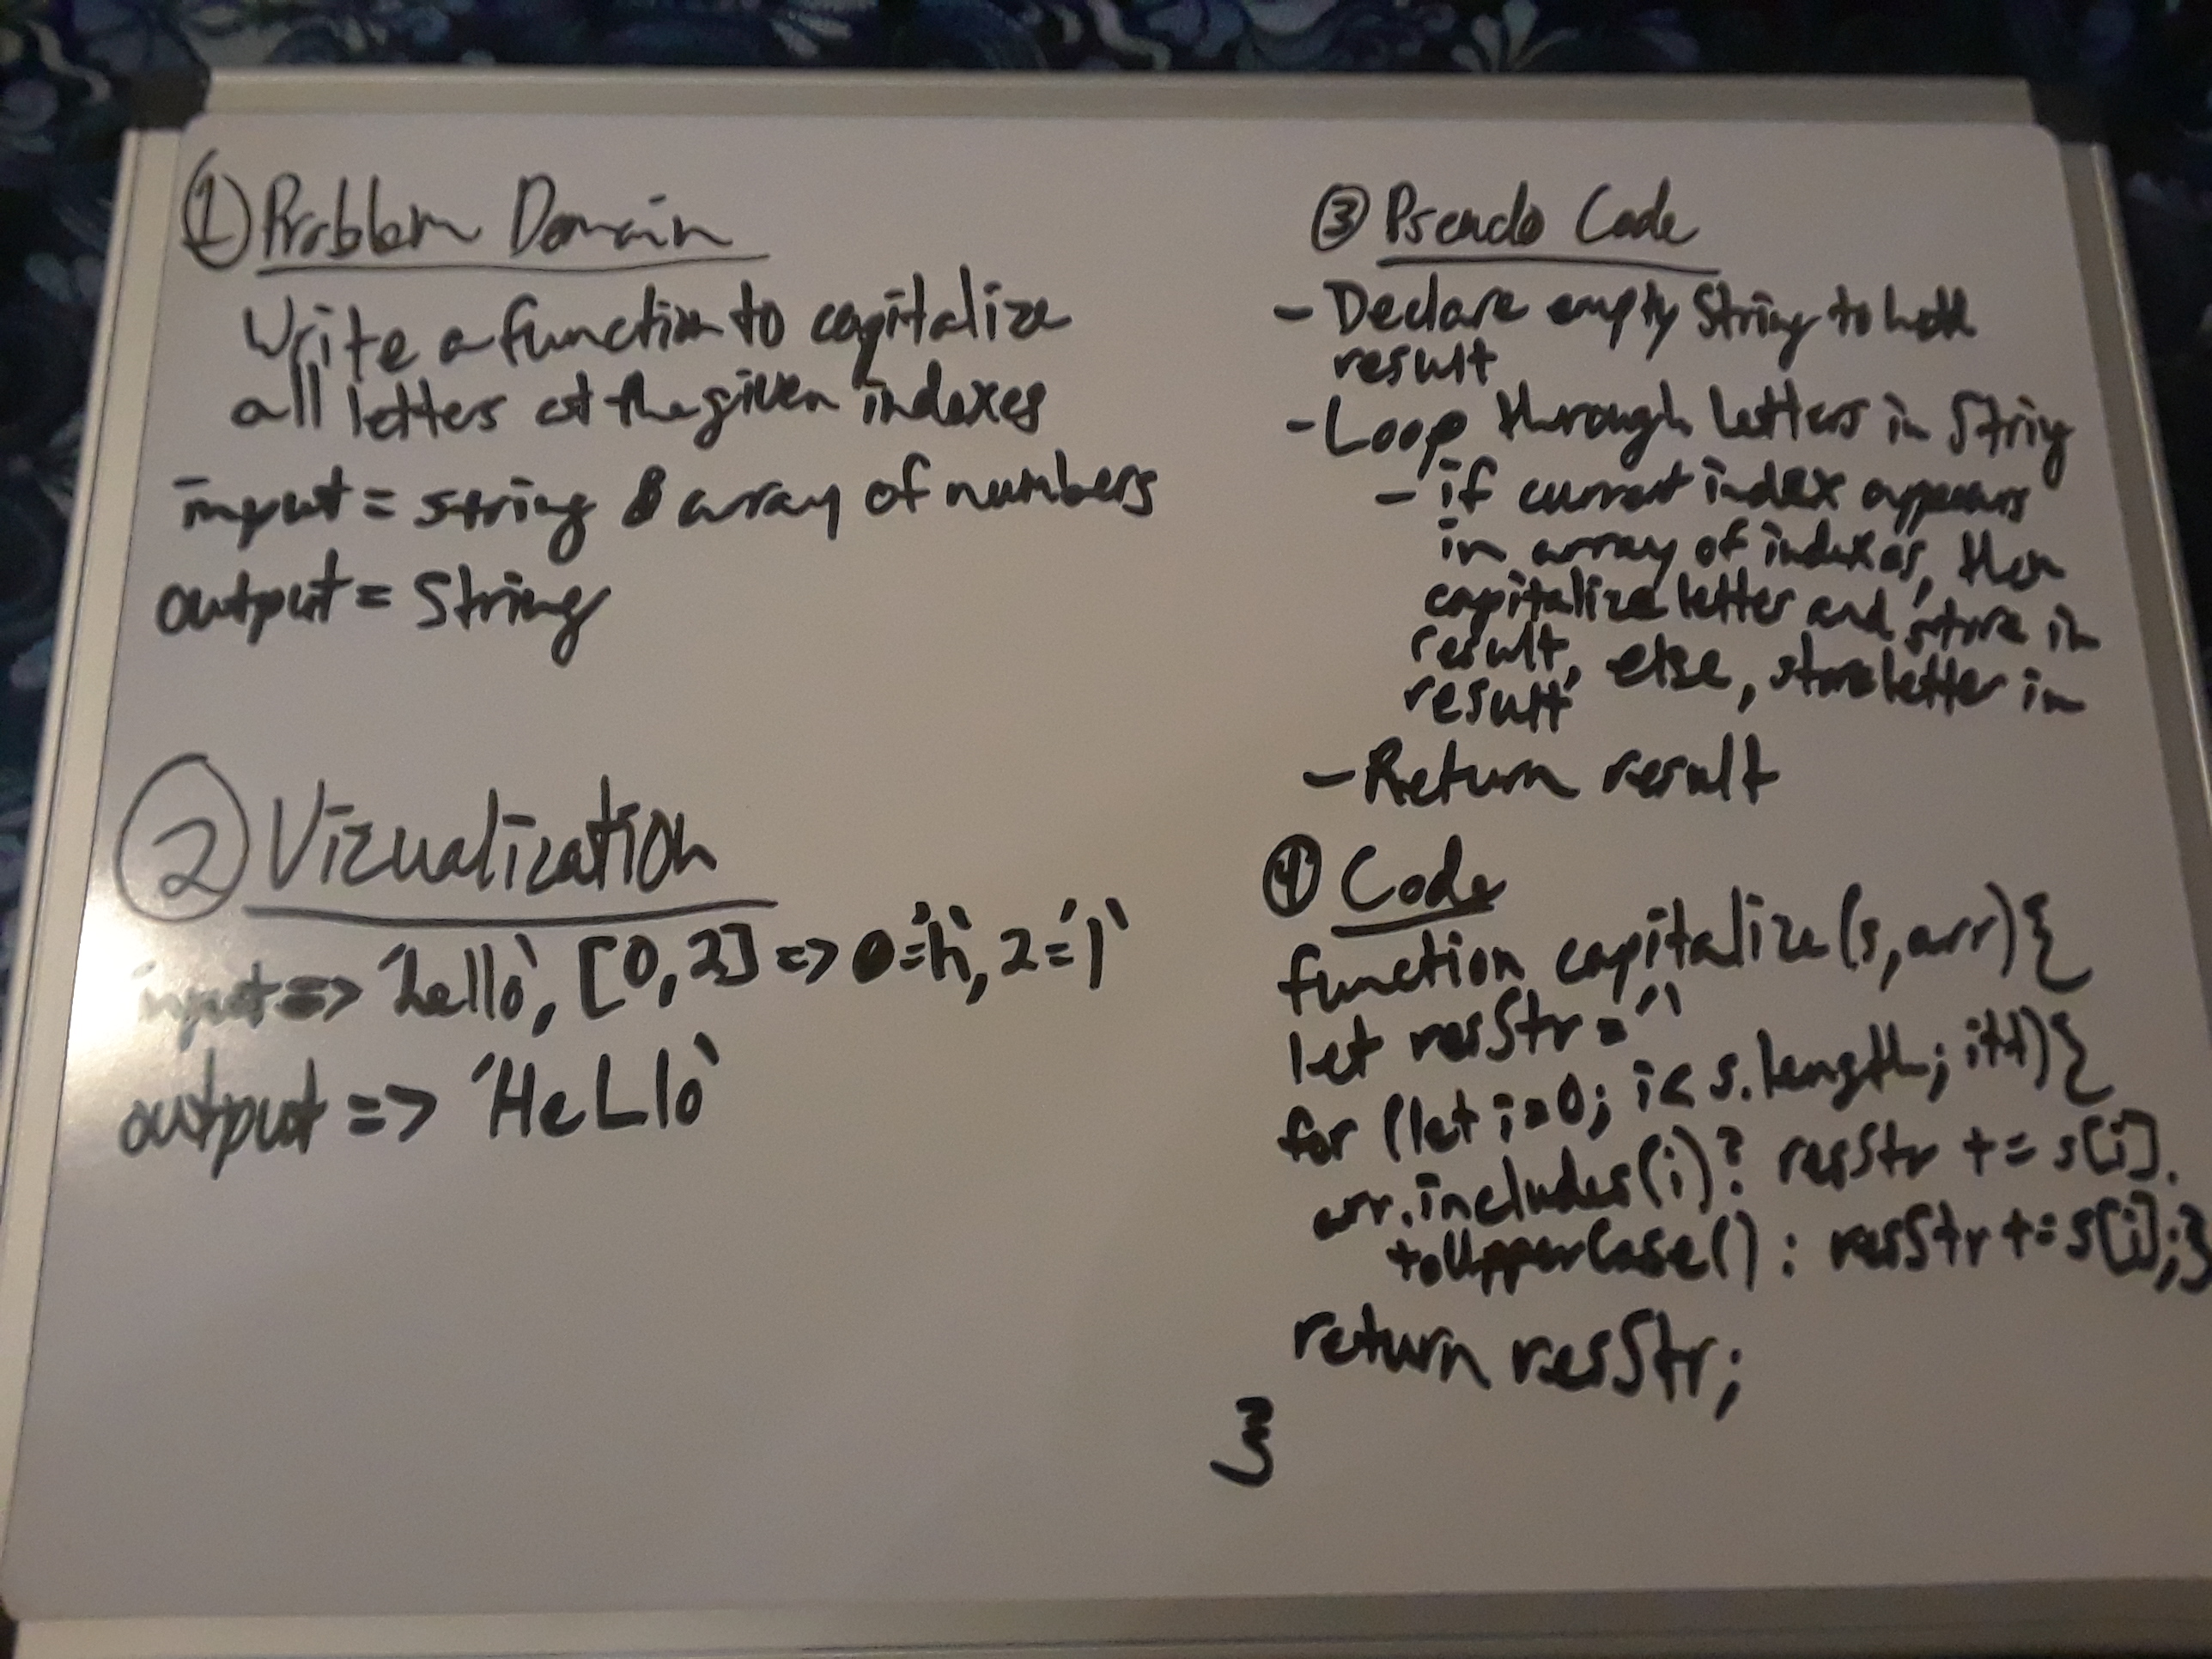 ① Problem Domain
Write a function to capitalize
all letters at the given indexes
input = string & array of numbers
output = String
② Vizualization
input => 'hello', [0,2] => 0='h', 2='l'
output => 'HeLlo'
③ Pseudo Code
- Declare empty String to hold
result
- Loop through letters in String
- if current index appears
in array of indexes, then
capitalize letter and store in
result, else, store letter in
result
- Return result
④ Code
function capitalize(s,arr){
let resStr = ''
for (let i=0; i< s.length; i++){
arr.includes(i)? resStr += s[i].
toUpperCase() : resStr += s[i];}
return resStr;
}